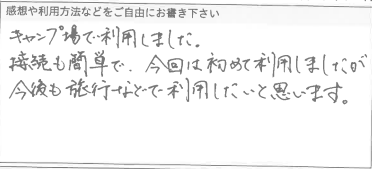 感想や利用方法などをご自由にお書き下さい
キャンプ場で利用しました。
接続も簡単で、今回は初めて利用しましたが
今後も旅行などで利用したいと思います。